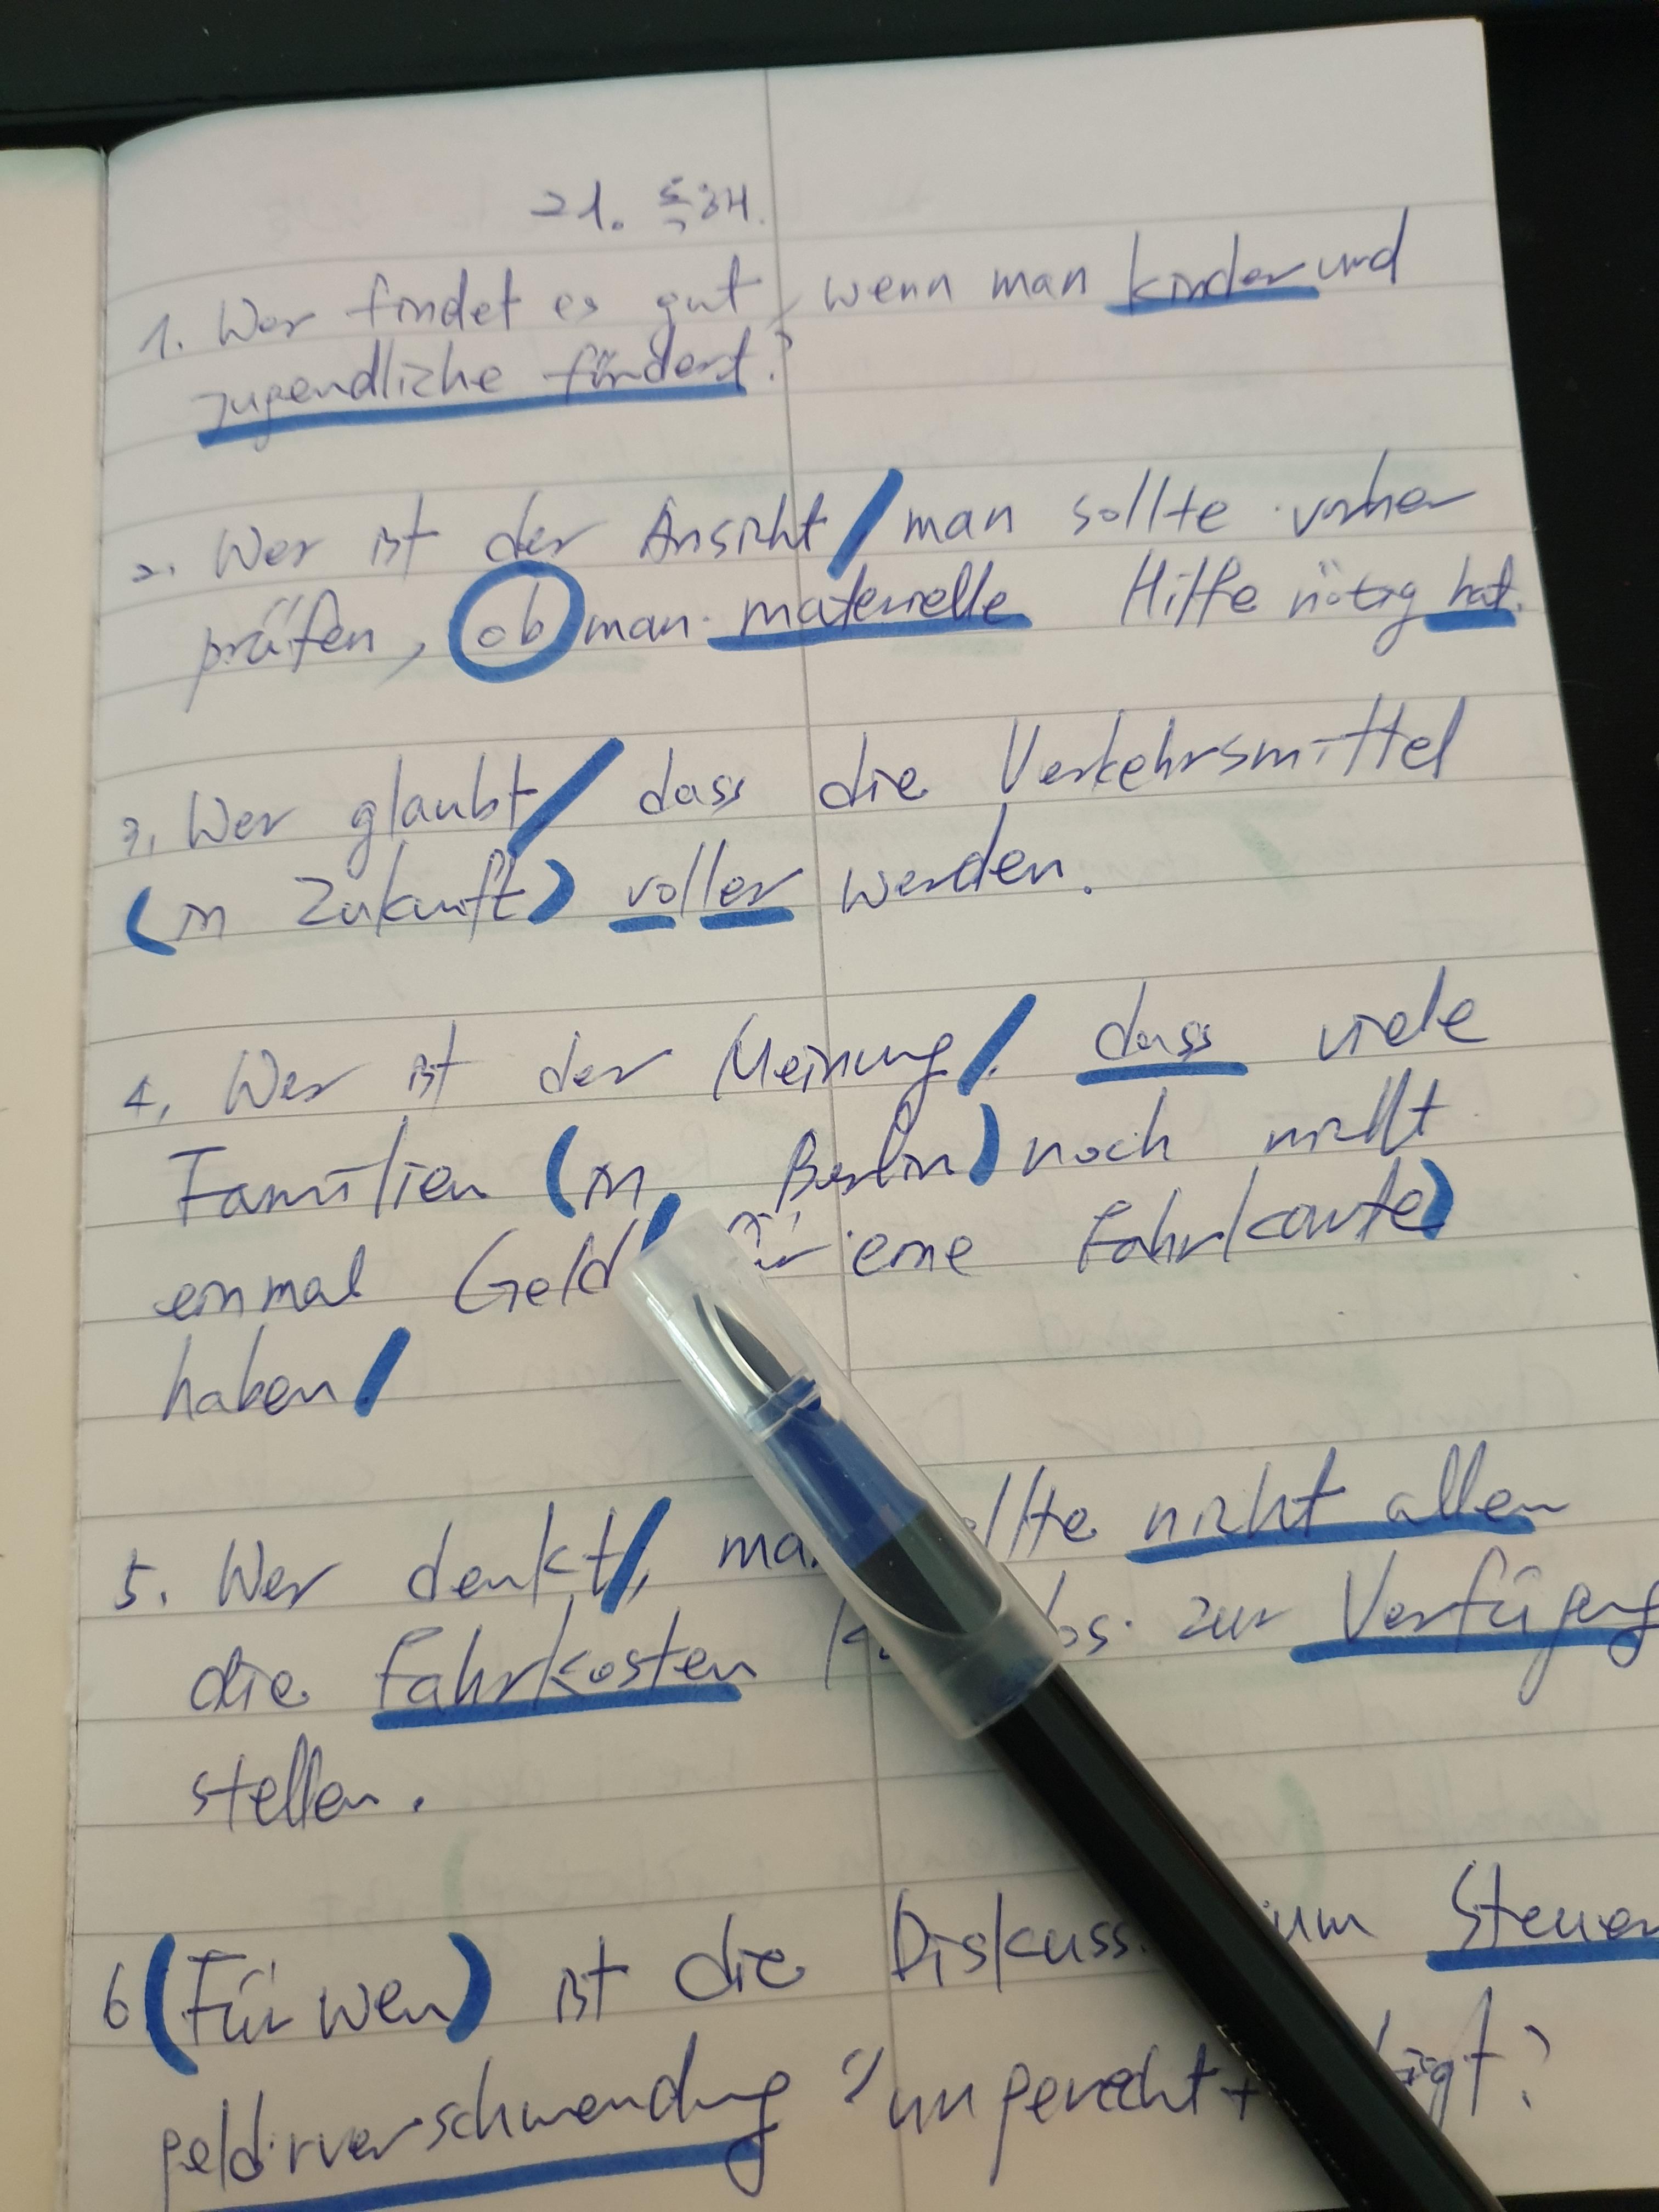 21. 독해.
1. Wer findet es gut, wenn man kinder und
Jugendliche fördert?
2. Wer ist der Ansicht / man sollte vorher
prüfen, ob man materielle Hilfe nötig hat.
3. Wer glaubt / dass die Verkehrsmittel
(in Zukunft) voller werden.
4. Wer ist der Meinung /, dass viele
Familien (in Berlin) noch nicht
einmal Geld / für eine Fahrkarte)
haben /
5. Wer denkt /, nicht allen
die Fahrkosten zur Verfügung
stellen.
6 (Für wen) ist die um Steuer
geldverschwendung